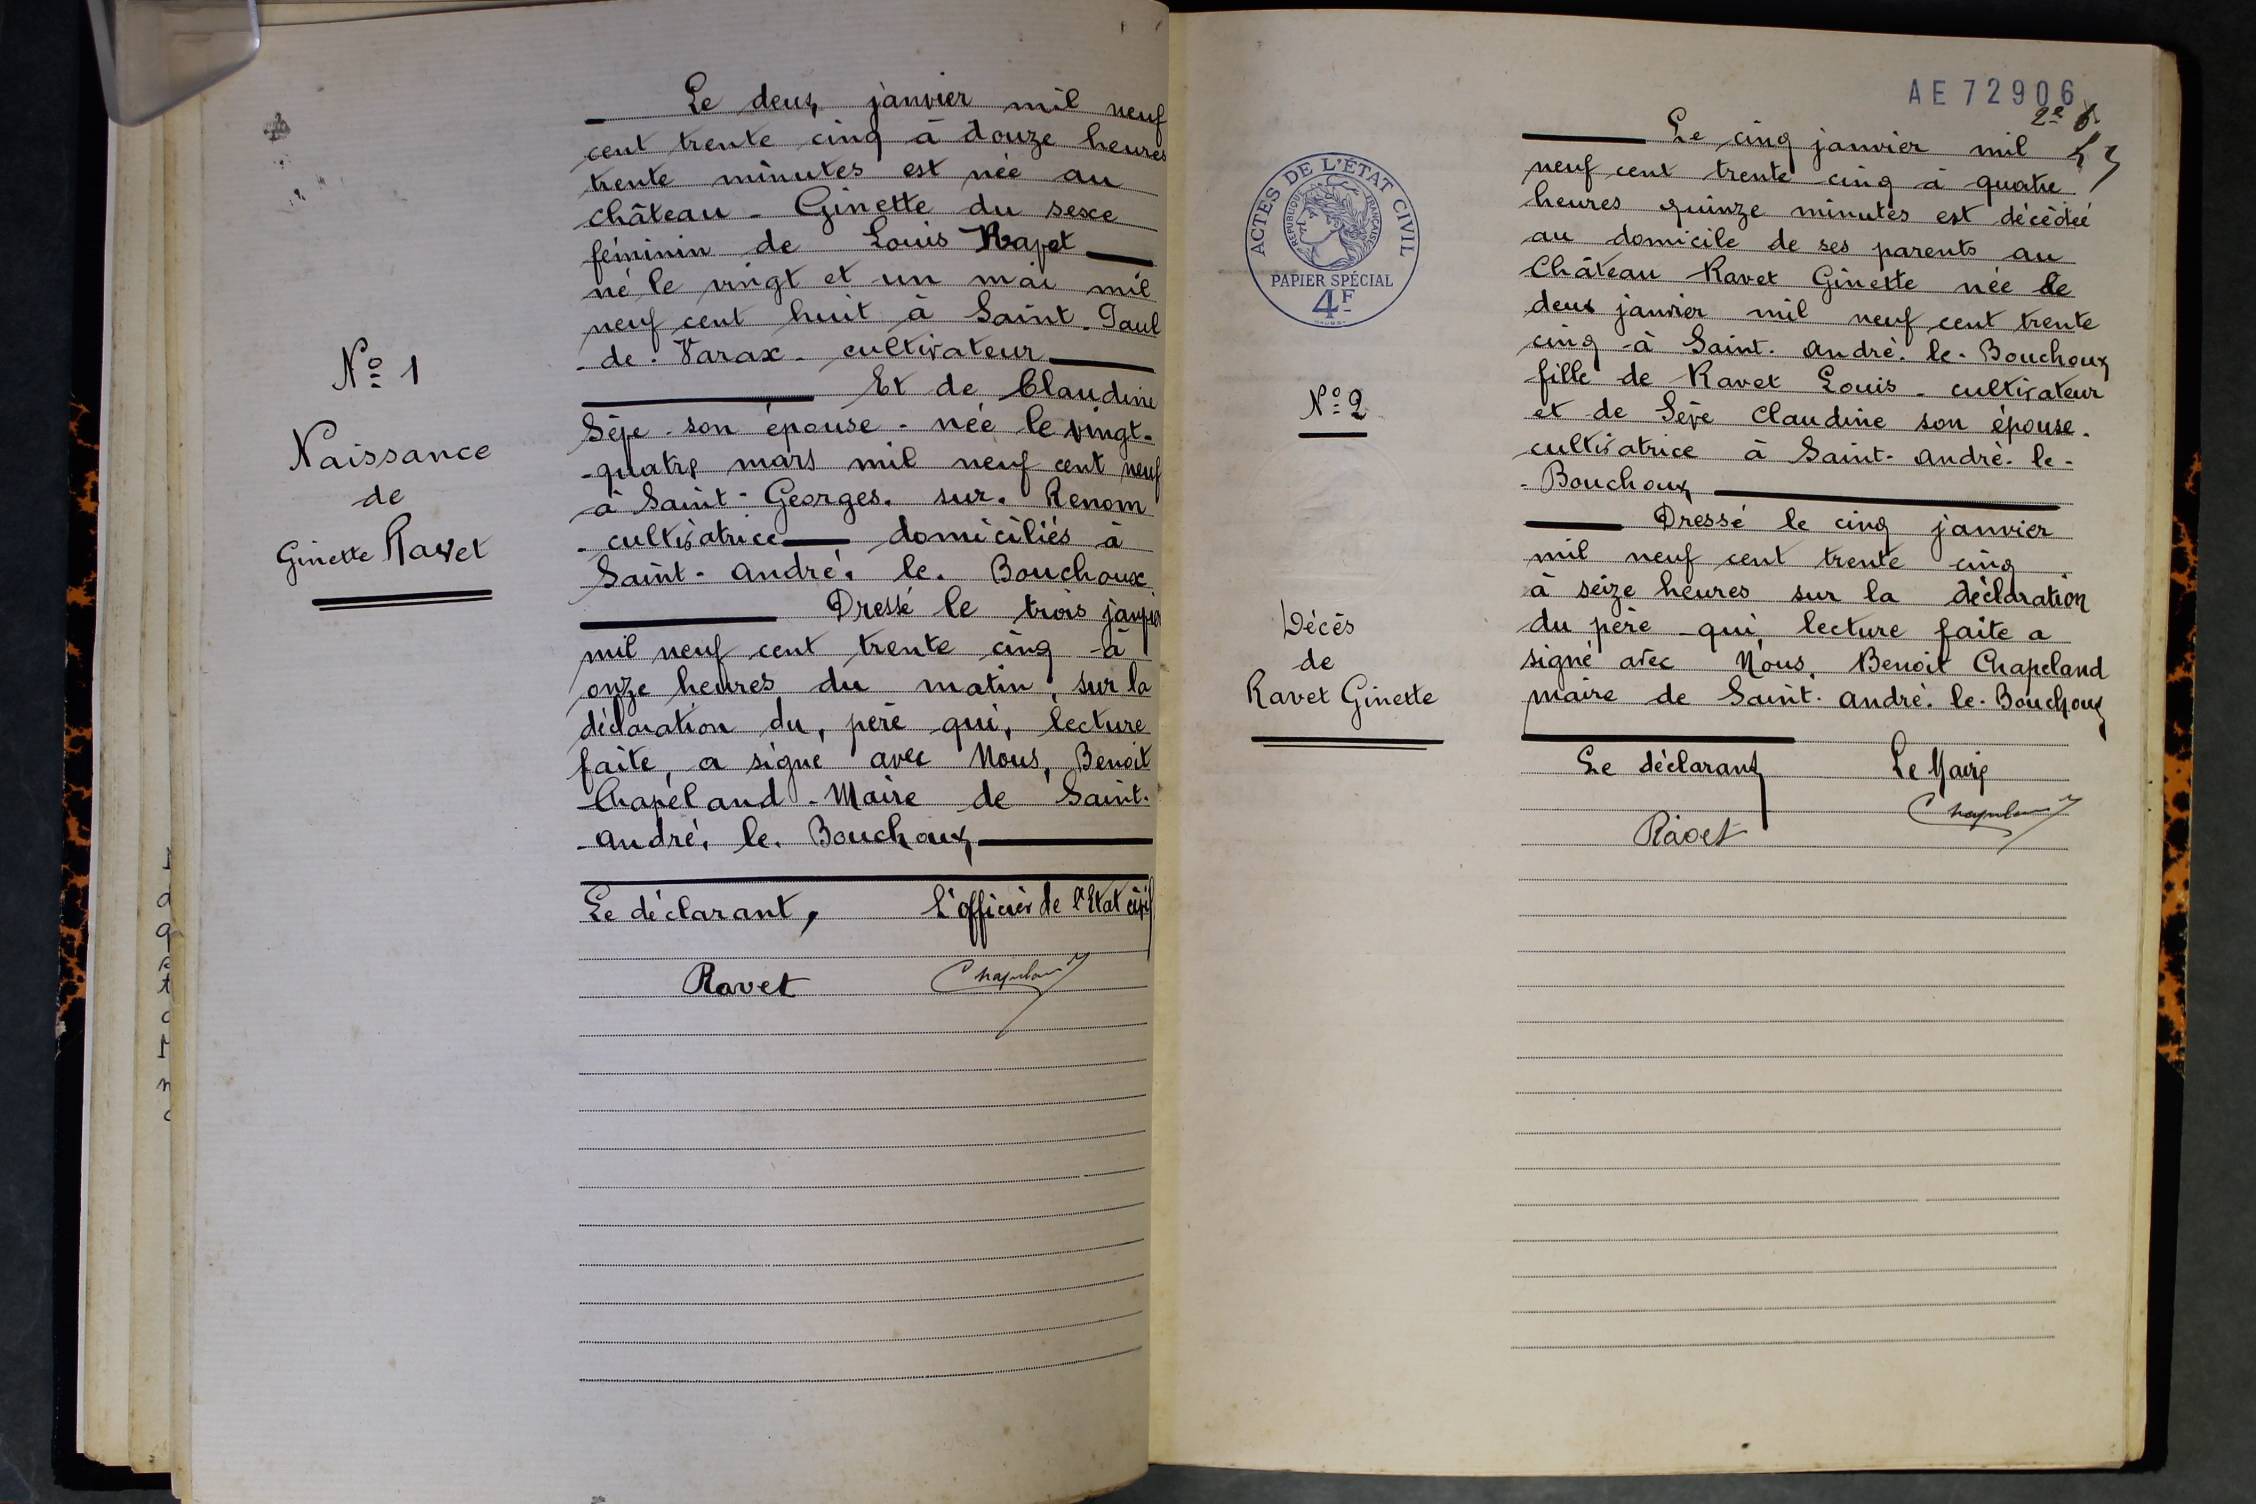 Nº 1
Naissance
de
Ginette Ravet
Le deux janvier mil neuf
cent trente cinq à douze heures
trente minutes est née au
château - Ginette du sexe
féminin de Louis Ravet
né le vingt et un mai mil
neuf cent huit à Saint-Paul
de-Varax - cultivateur
Et de Claudine
Sève - son épouse - née le vingt-
-quatre mars mil neuf cent neuf
à Saint-Georges-sur-Renom
- cultivatrice domiciliés à
Saint-André-le-Bouchoux
Dressé le trois janvier
mil neuf cent trente cinq à
onze heures du matin, sur la
déclaration du, père qui, lecture
faite, a signé avec Nous, Benoit
Chapeland - Maire de Saint-
-André-le-Bouchoux
Le déclarant, L'officier de l'Etat civil
Ravet Chapeland
AE 72906
2e
ACTES DE L'ÉTAT CIVIL
RÉPUBLIQUE FRANÇAISE
PAPIER SPÉCIAL
4F
Nº 2
Décès
de
Ravet Ginette
Le cinq janvier mil
neuf cent trente cinq à quatre
heures quinze minutes est décèdée
au domicile de ses parents au
Château Ravet Ginette née le
deux janvier mil neuf cent trente
cinq - à Saint-André-le-Bouchoux
fille de Ravet Louis - cultivateur
et de Sève Claudine son épouse.
cultivatrice à Saint-André-le-
-Bouchoux
Dressé le cinq janvier
mil neuf cent trente cinq
à seize heures sur la déclaration
du père - qui, lecture faite a
signé avec Nous, Benoit Chapeland
maire de Saint-André-le-Bouchoux
Le déclarant Le Maire
Ravet Chapeland